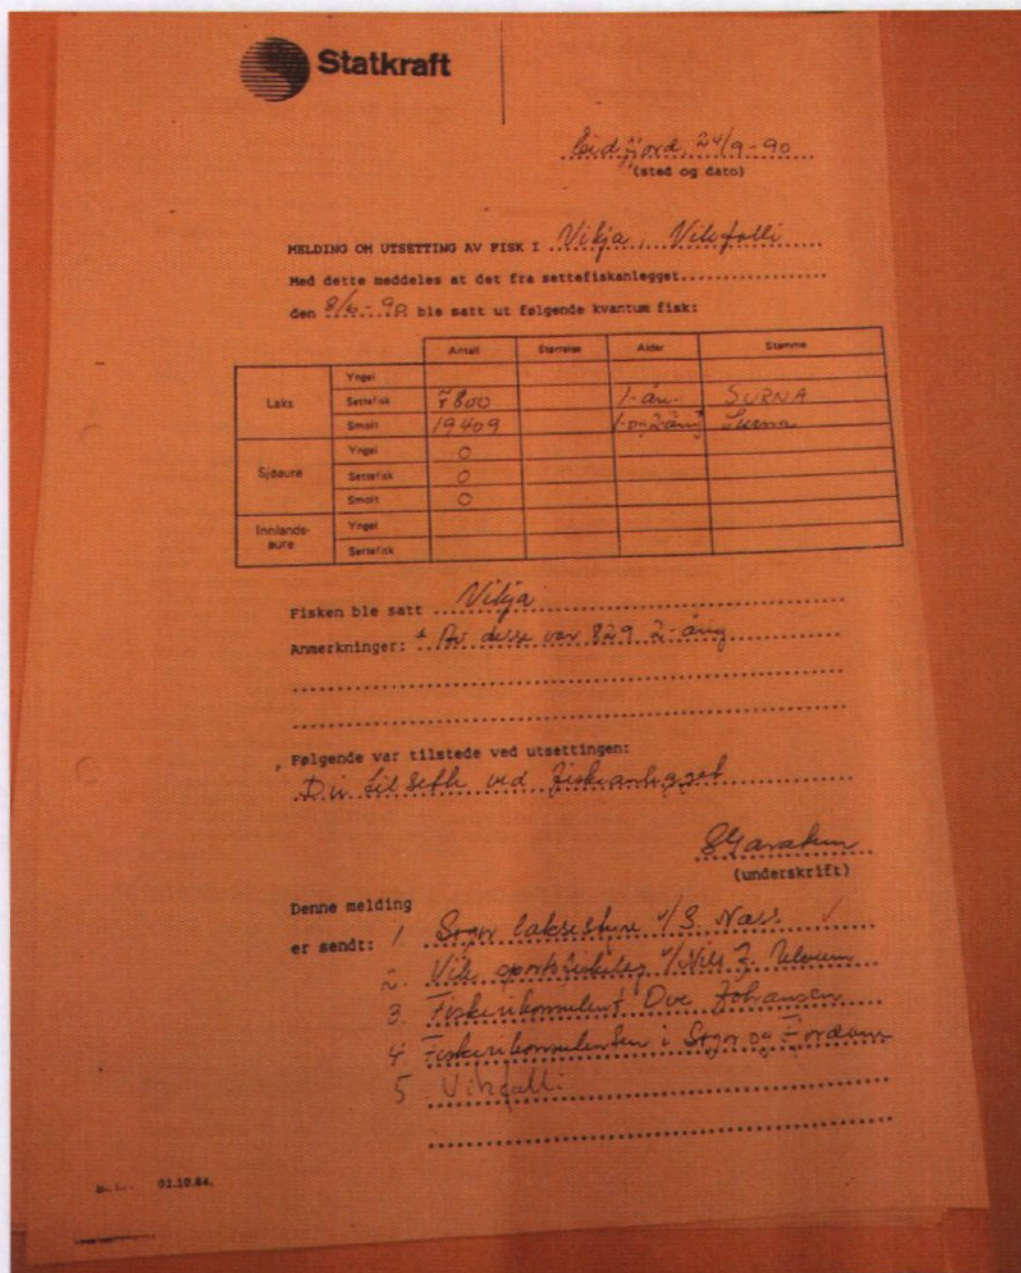 Statkraft
Eidfjord, 24/9-90
(sted og dato)
MELDING OM UTSETTING AV FISK I Vikja, Vikfalli
Med dette meddeles at det fra settefiskanlegget
den 8/6-90 ble satt ut følgende kvantum fisk:
Antall Størrelse Alder Stamme
Laks
Yngel
Settefisk 7800 1-år. SURNA
Smolt 19409 1-og 2-årig* Surna
Sjøaure
Yngel 0
Settefisk 0
Smolt 0
Innlands-
aure
Yngel
Settefisk
Fisken ble satt Vikja
Anmerkninger: * Av disse var 829 2-årig
Følgende var tilstede ved utsettingen:
ved fiskeanlegget
(underskrift)
Denne melding
er sendt: 1. Sogn laksestyre v/S. Nass ✓
2. Vik sportsfiskelag v/Nils
3. Fiskerikonsulent Ove Johansen
4 Fiskerikonsulenten i Sogn og Fjordane
5 Vikfalli
01.10.84.